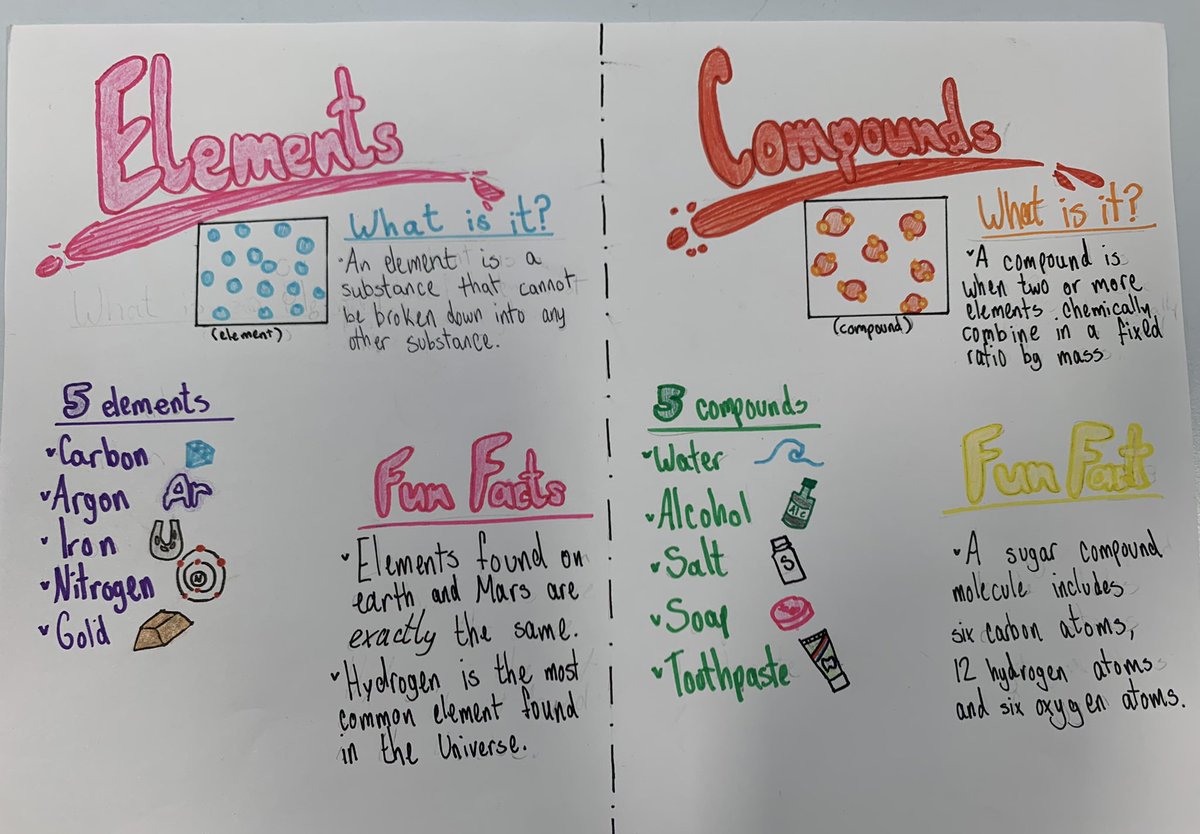 Elements
What is it?
An element is a
substance that cannot
be broken down into any
other substance.
(element)
What is
5 elements
Carbon
Argon
Ar
Iron
Nitrogen
N
Gold
Fun Facts
Elements found on
earth and Mars are
exactly the same.
Hydrogen is the most
common element found
in the Universe.
Compounds
What is it?
A compound is
when two or more
elements chemically
combine in a fixed
ratio by mass
(compound)
5 compounds
Water
Alcohol
Alc
Salt
S
Soap
Toothpaste
Fun Fact
A sugar compound
molecule includes
six carbon atoms,
12 hydrogen atoms
and six oxygen atoms.